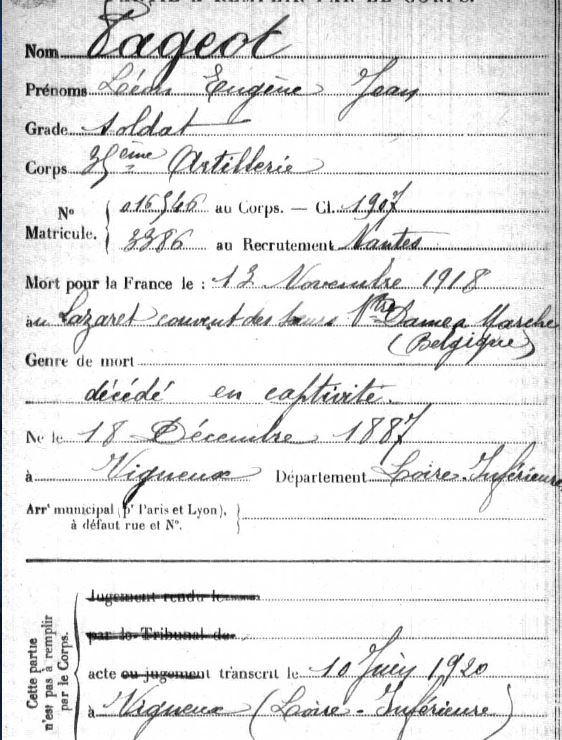 PARTIE À REMPLIR PAR LE CORPS.
Nom Pageot
Prénoms Léon Eugène Jean
Grade soldat
Corps 35ème Artillerie
No 016546 au Corps. — Cl. 1907
Matricule. 3386 au Recrutement Nantes
Mort pour la France le : 13 Novembre 1918
au Lazaret couvent des Sœurs Ntre Dame a Marche
(Belgique)
Genre de mort
décédé en captivité.
Né le 18 Décembre 1887
à Vigneux Département Loire-Inférieure
Arrt municipal (pr Paris et Lyon),
à défaut rue et No.
Jugement rendu le
par le Tribunal de
acte ou jugement transcrit le 10 Juin 1920
à Vigneux (Loire-Inférieure)
Cette partie
n'est pas à remplir
par le Corps.